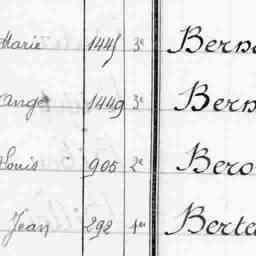 Marie 1445 3e Bern
Ange 1449 3e Bern
Louis 905 2e Bero
Jean 292 1er Berta